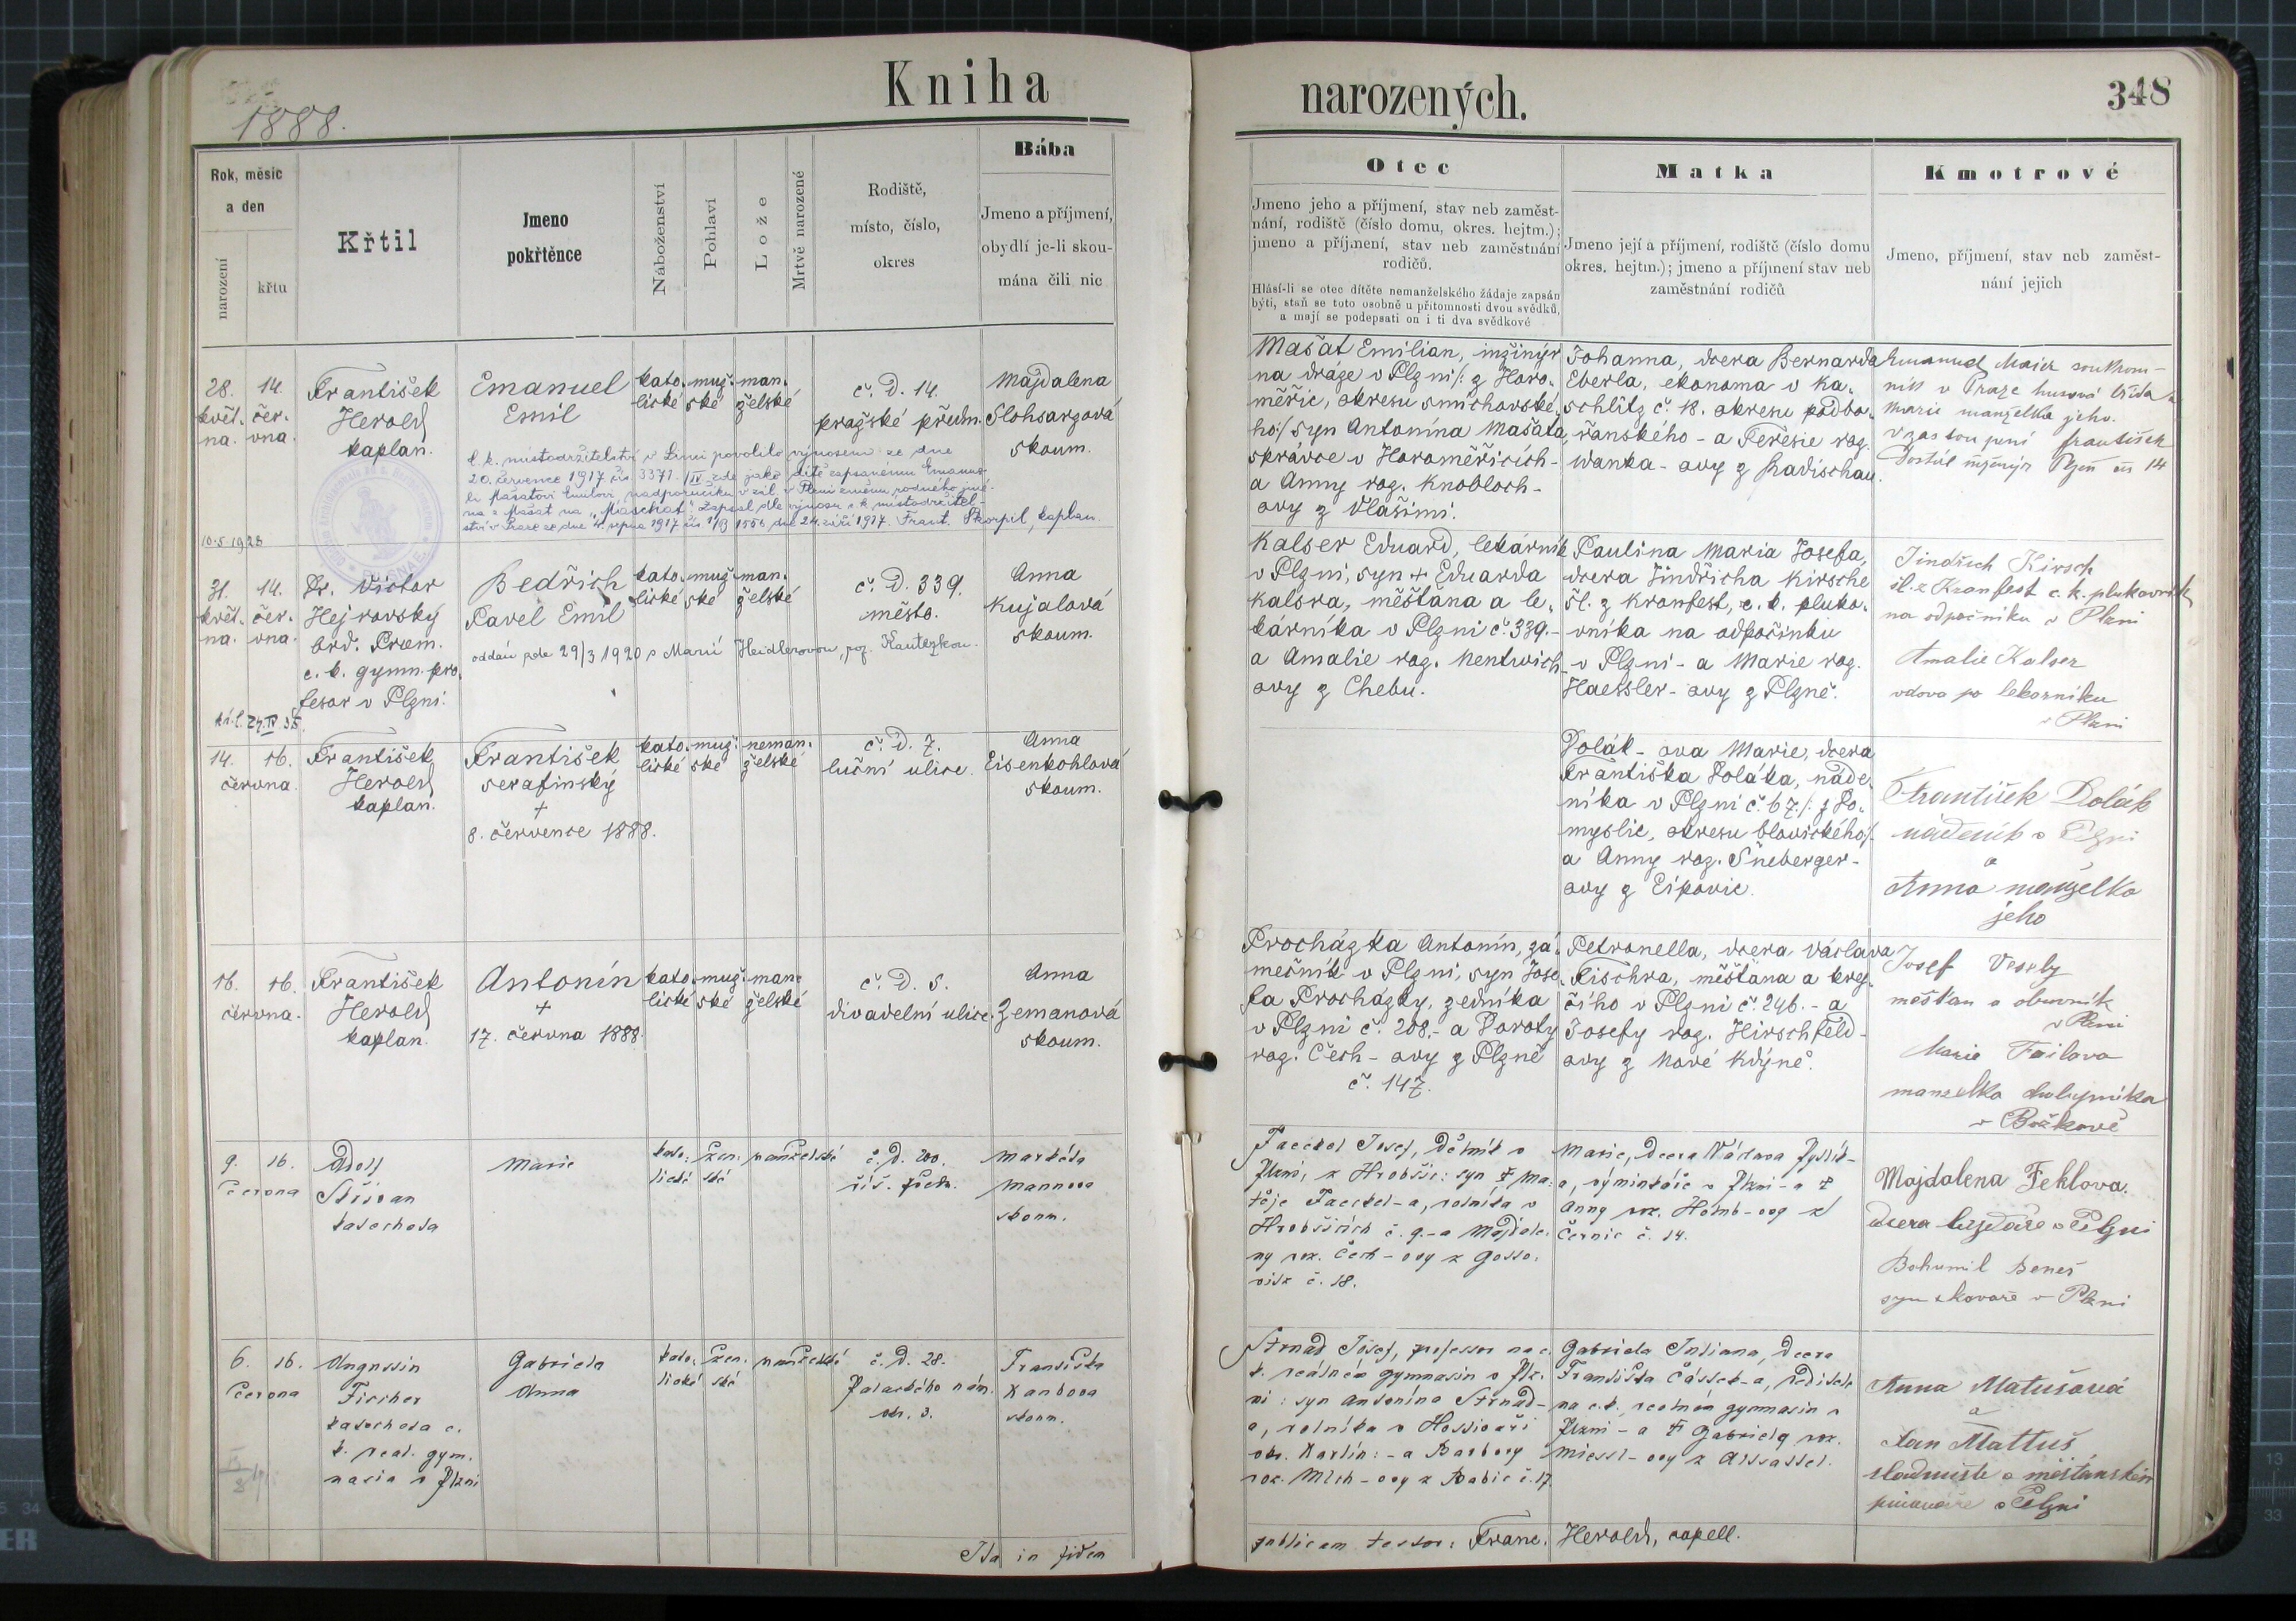 Kniha
narozených.
348
1888.
Rok, měsíc
a den
narození
křtu
Křtil
Jmeno
pokřtěnce
Náboženství
Pohlaví
Lože
Mrtvě narozené
Rodiště,
místo, číslo,
okres
Bába
Jmeno a příjmení,
obydlí je-li skou-
mána čili nic
Otec
Jmeno jeho a příjmení, stav neb zaměst-
nání, rodiště (číslo domu, okres. hejtm.);
jmeno a příjmení, stav neb zaměstnání
rodičů.
Hlásí-li se otec dítěte nemanželského žádaje zapsán
býti, staň se toto osobně u přítomnosti dvou svědků,
a mají se podepsati on i ti dva svědkové
Matka
Jmeno její a příjmení, rodiště (číslo domu
okres. hejtm.); jmeno a příjmení stav neb
zaměstnání rodičů
Kmotrové
Jmeno, příjmení, stav neb zaměst-
nání jejich
28.
květ.
na.
14.
čer.
vna.
František
Herold
kaplan.
Emanuel
Emil
kato.
lické
muž.
ské
man.
želské
č. D. 14.
pražské předm.
Majdalena
Slohsargová
skoum.
c. k. místodržitelství v Brně povolilo výnosem ze dne
20. července 1917 čís 3371./IV zde jako dítě zapsanému Emanue-
lu Mašatovi Emilovi, nadporučíku v zál. v Plzni změnu rodného jmé-
na z Mašat na „Maschat“ Zapsal dle výnosu c. k. místodržitel-
ství v Praze ze dne 4. srpna 1917 dne 24. září 1917. Frant. Škorpil, kaplan.
Mašat Emilian, inžinýr
na dráze v Plzni /: z Horo.
měřic, okresu smíchovské.
ho:/ syn Antonína Mašata,
správce v Horoměřicích-
a Anny roz. Knobloch-
ovy z Vlašimi.
Johanna, dcera Bernarda
Eberla, ekonoma v Ka.
schlitz č. 18. okresu podbo.
řanského - a Terezie roz.
Wanka - ovy z Radischau.
Emanuel Maier soukrom-
ník v Praze husová třída
Marie manželka jeho.
v zastoupení František
Dostál inženýr Plzeň čís 14
10.5.1928
31.
květ.
na.
14.
čer.
vna.
Dr. Victor
Hejrovský
ord. Praem.
c. k. gymn. pro.
fesor v Plzni.
Bedřich
Pavel Emil
kato.
lické
muž.
ské
man.
želské
č. D. 339.
město.
Anna
Kujalová
skoum.
oddán zde 29/3 1920 s Marií Heidlerovou, roz. Kautezkou.
Kalser Eduard, lékárník
v Plzni, syn + Eduarda
Kalsra, měšťana a lé.
kárníka v Plzni č. 339.-
a Amalie roz. Nentwich-
ovy z Chebu.
Paulina Maria Josefa,
dcera Jindřicha Kirsche
šl. z Kronfest, c. k. pluko.
vníka na odpočinku
v Plzni - a Marie roz.
Haessler - ovy z Plzně.
Jindřich Kirsch
šl. z Kronfest c. k. plukovník
na odpočinku v Plzni
Amalie Kalser
vdova po lekárníku
v Plzni
14.
června.
16.
František
Herold
kaplan.
František
serafinský
+
8. července 1888.
kato.
lické
muž.
ské
neman.
želské
č. D. 7.
luční ulice.
Anna
Eisenkohlová
skoum.
Polák - ova Marie, dcera
Františka Poláka, náde.
níka v Plzni č. 67. /: z Po.
myslic, okresu blovického:/.
a Anny roz. Šneberger-
ovy z Ejpovic.
František Polák
nádeník v Plzni
a
Anna manželka
jeho
16.
června.
16.
František
Herold
kaplan.
Antonín
+
17. června 1888.
kato.
lické
muž.
ské
man.
želské
č. D. 5.
divadelní ulice.
Anna
Zemanová
skoum.
Procházka Antonín, zá.
mečník v Plzni, syn Jose.
fa Procházky, zedníka
v Plzni č. 208.- a Doroty
roz. Čech - ovy z Plzně
č. 147.
Petronella, dcera Václava
Fischra, měšťana a krej.
čího v Plzni č. 246. - a
Josefy roz. Hirschfeld-
ovy z Nové Kdýně.
Josef Veselý
měštan a obuvník
v Plzni
Marie Failova
manželka chalupníka
v Božkově
9.
června
16.
Adolf
Střívan
katecheta
Marie
kato.
lické
žen.
ské
manželské
č. D. 200.
říš. předm.
Markéta
Mannova
skoum.
Faeckel Josef, dělník v
Plzni, z Hrobšic: syn † Ma.
těje Faeckel-a, rolníka v
Hrobšicích č. 9.- a Majdale.
ny roz. Čech - ovy z Gosso.
visk č. 18.
Marie, dcera Václava
a, výminkáře v Plzni - a †
Anny roz. Homb - ovy z
Černic č. 14.
Majdalena Feklova.
dcera v Plzni
Bohumil Beneš
syn v Plzni
6.
června
16.
Augustin
Fischer
katecheta c.
k. real. gym.
nasia v Plzni
Gabriela
Anna
kato.
lické
žen.
ské
manželské
č. D. 28.
Palackého nám.
obv. 3.
Františka
Kandova
skoum.
Strnad Josef, professor na c.
k. reálném gymnasiu v Plz.
ni: syn Antonína Strnad-
a, rolníka v Hostivaři
okr. Karlín: - a Barbory
roz. Mlch - ovy z Babic č. 17.
Gabriela Juliana, dcera
Františka Částek-a, ředitele
na c. k. reálném gymnasiu v
Plzni - a † Gabriely roz.
Miessl - ovy z Altsattel.
Anna Matušová
a
Jan Mattuš
sladmistr v měšťanském
pivovaře v Plzni
Ita in fidem
publicam testor: Franc. Herold, capell.